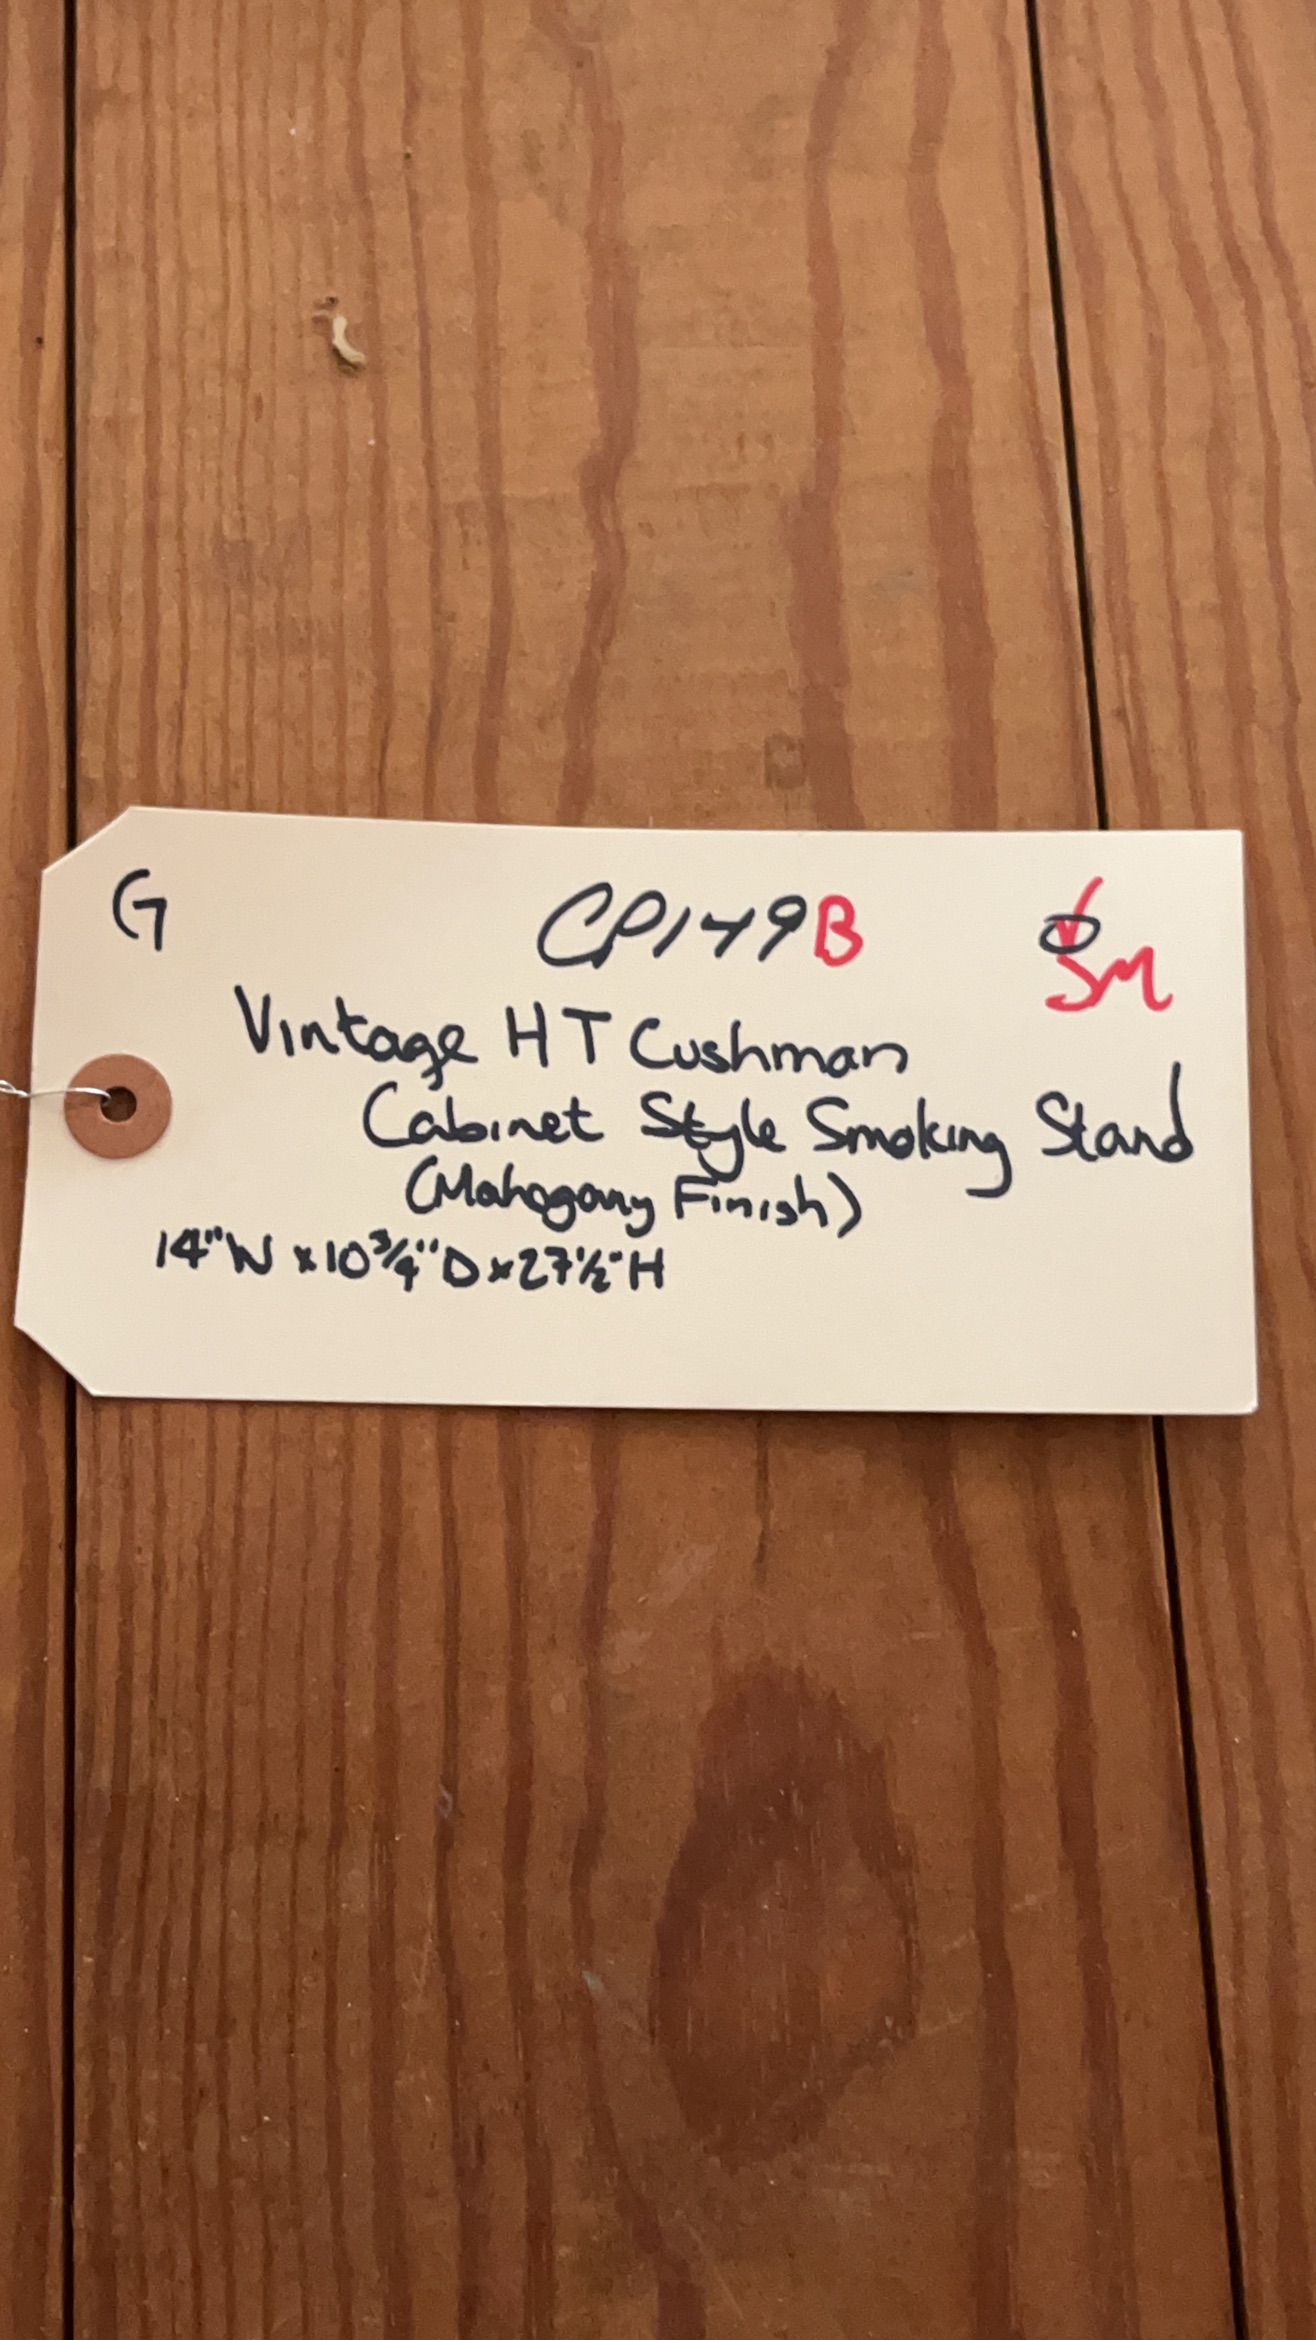 G CP149B
SM
Vintage HT Cushman
Cabinet Style Smoking Stand
(Mahogany Finish)
14"W x 10 3/4"D x 27 1/2"H